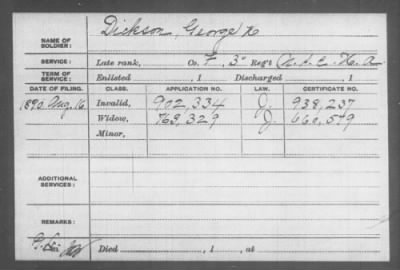 NAME OF SOLDIER: Dickson, George
SERVICE: Late rank, Co. F, 3" Reg't
TERM OF SERVICE: Enlisted , 1 Discharged , 1
DATE OF FILING. CLASS. APPLICATION NO. LAW. CERTIFICATE NO.
1890 Aug. 16 Invalid, 902,334 J. 938,237
Widow, 768,329 J. 660,579
Minor,
ADDITIONAL SERVICES:
REMARKS:
Died , 1 , at